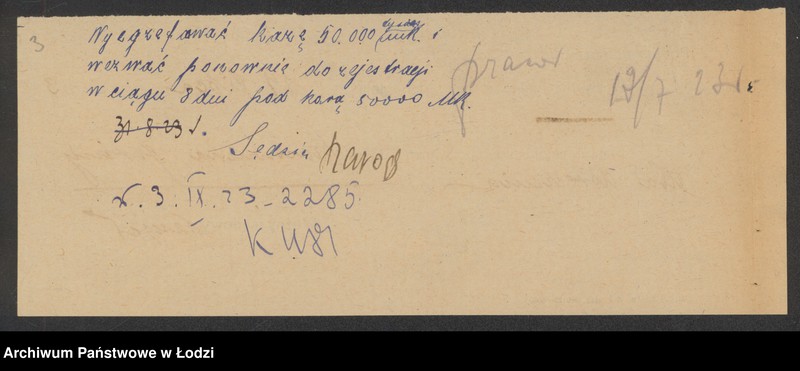 3
Wyegzekwować karę 50.000 mk. i
wezwać ponownie do rejestracji
w ciągu 8 dni pod karą 50000 Mk.
31.8.23 r.
Sędzia
praw
19/7 23 r.
w. 3. IX. 23 - 2285
Archiwum Państwowe w Łodzi